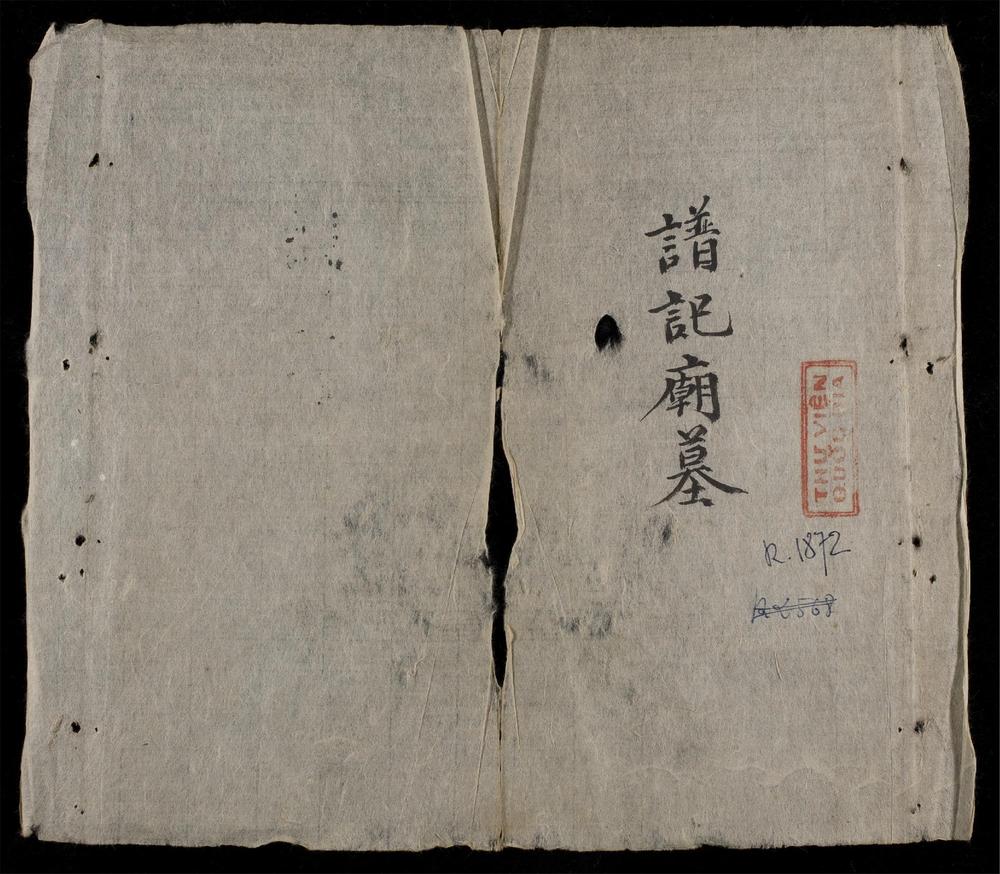 譜記廟墓
THƯ VIỆN
QUỐC GIA
R.1872